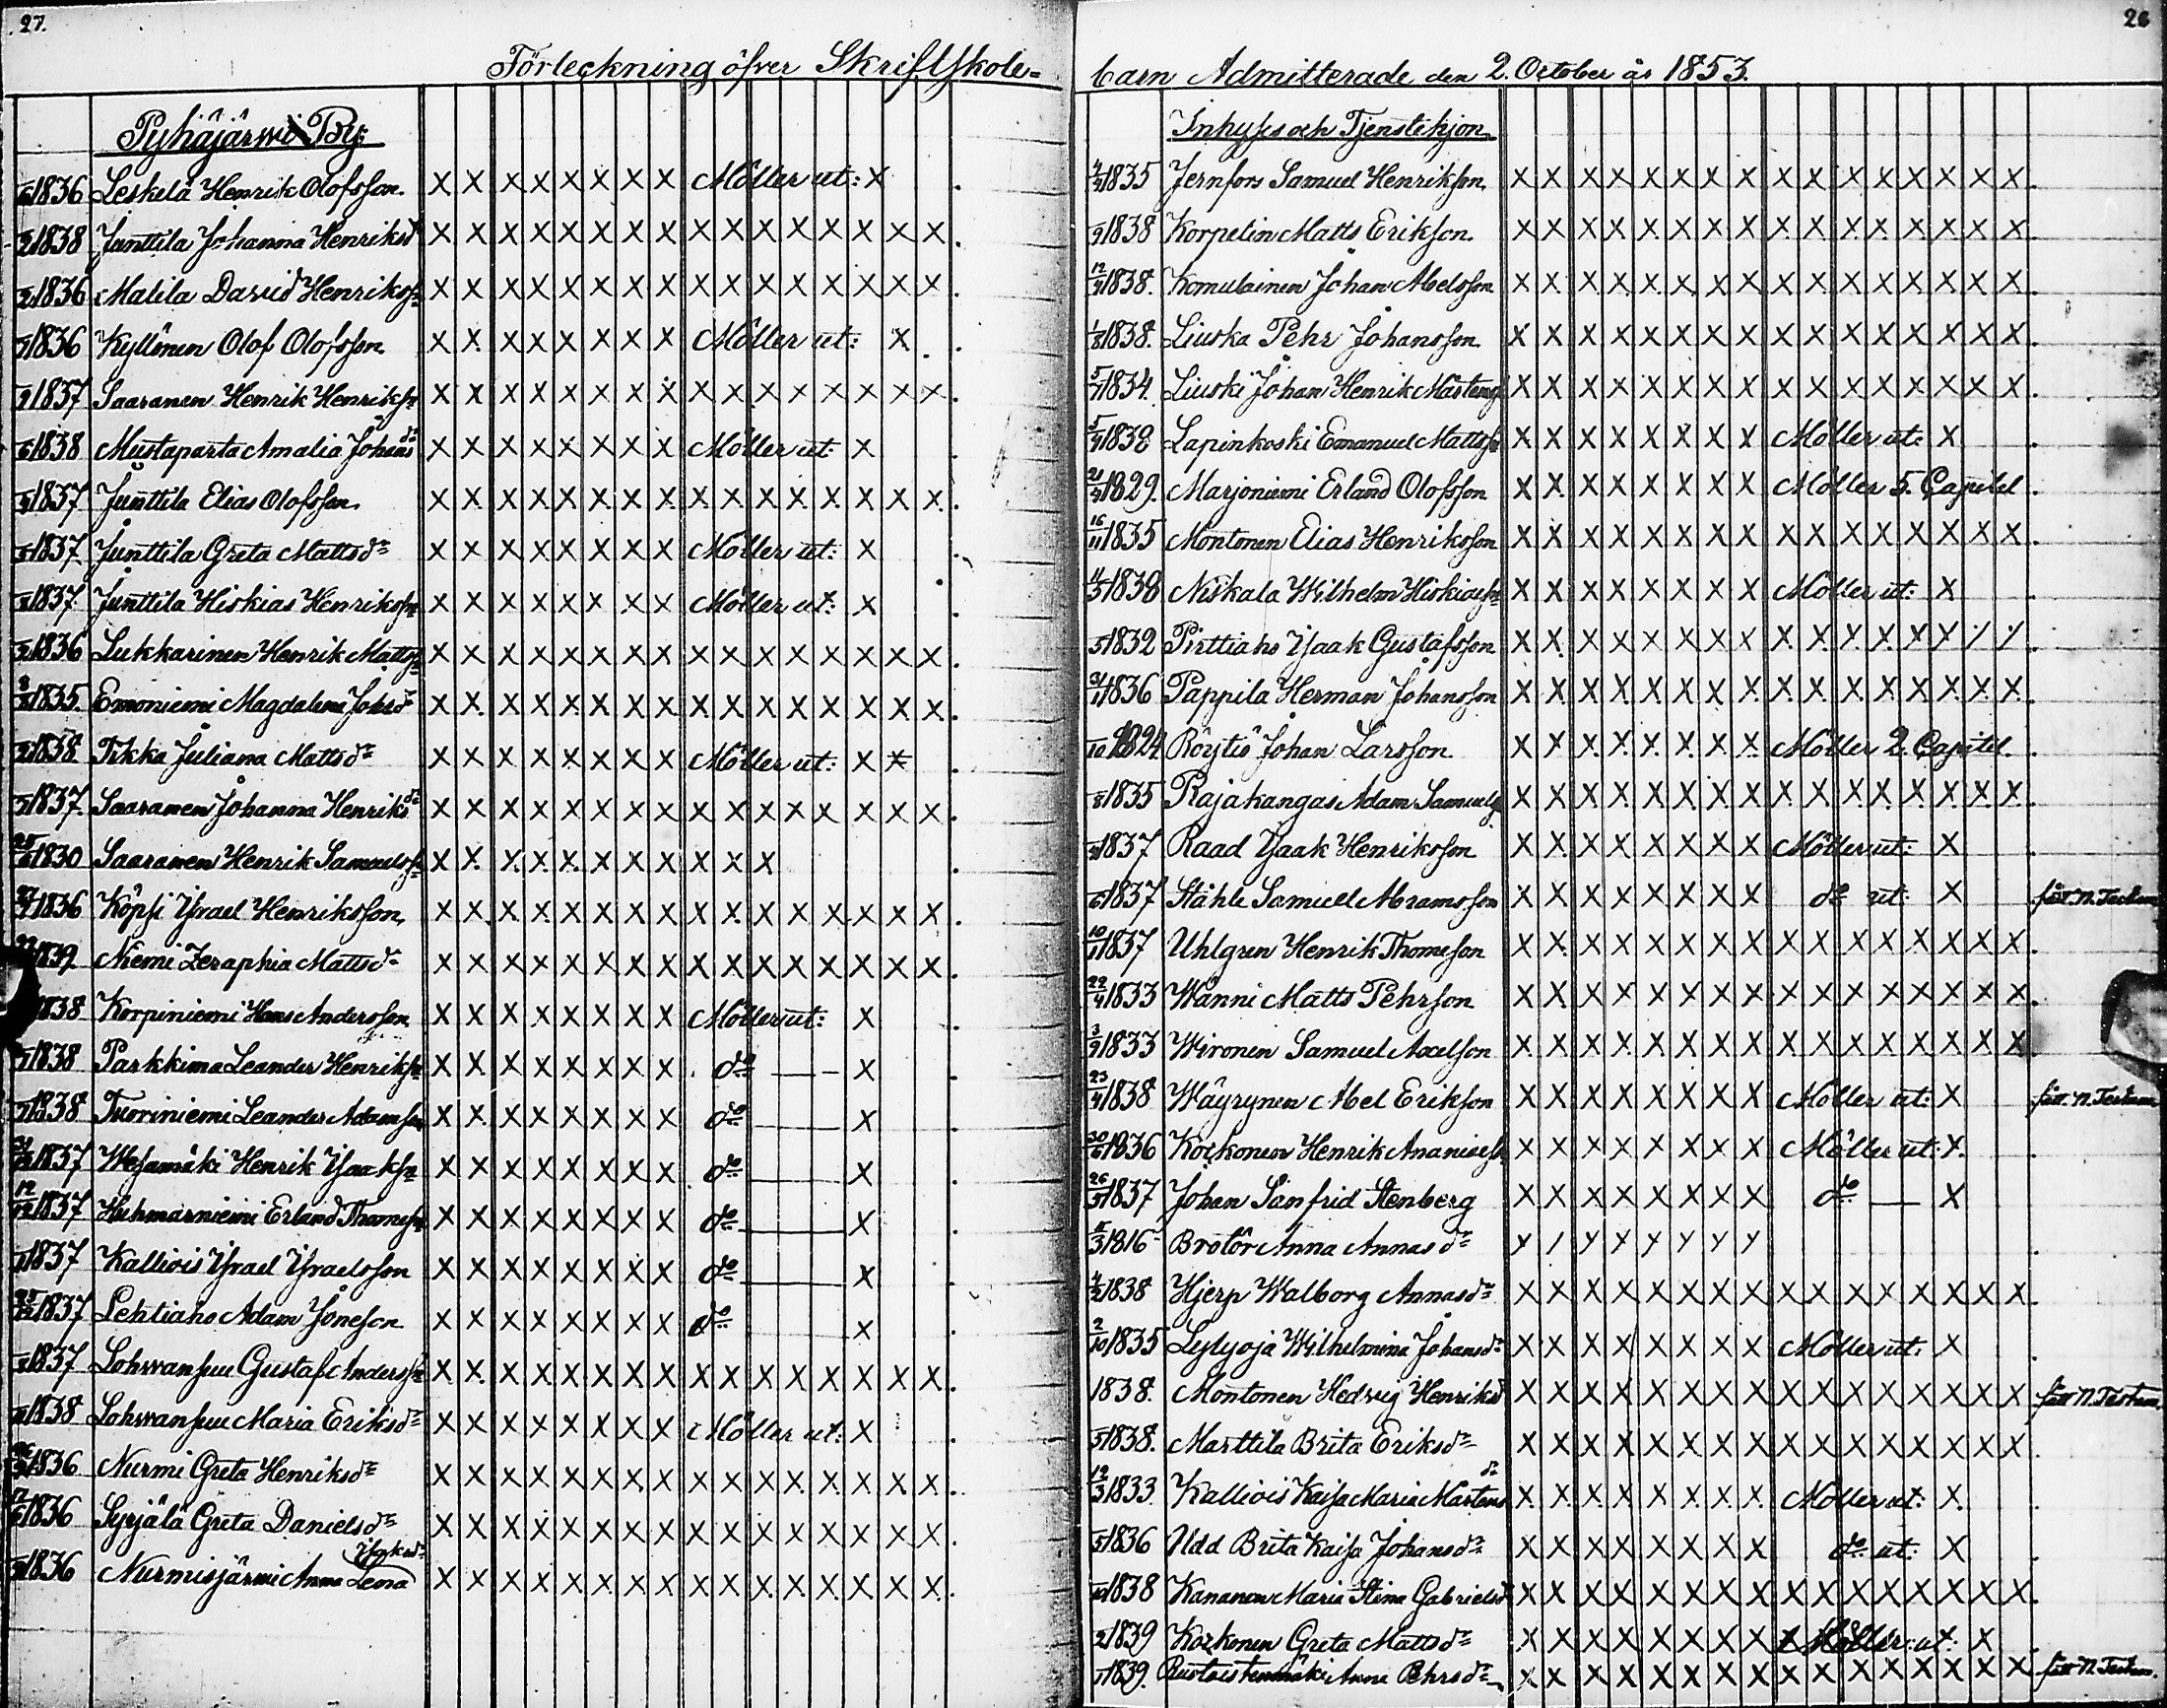 27.
Förteckning öfver Skriftskole=
Pyhäjärwi By:
1836 Leskelä Henrik Olofsson. X X X X X X X X Möller ut: X
1838 Junttila Johanna Henriksdr X X X X X X X X X X X X X X X X
1836 Matila David Henrikss: X X X X X X X X X X X X X X X X
1836 Kyllönen Olof Olofsson X X X X X X X X Möller ut: X
1837 Saaranen Henrik Henrikss: X X X X X X X X X X X X X X X X
1838 Mustaparta Amalia Johansdr X X X X X X X X Möller ut: X
1837 Junttila Elias Olofsson. X X X X X X X X X X X X X X X X
1837 Junttila Greta Mattsdr X X X X X X X X Möller ut: X
1837 Junttila Hiskias Henrikss: X X X X X X X X Möller ut: X
1836 Lukkarinen Henrik Mattss: X X X X X X X X X X X X X X X X
1835 Emoniemi Magdalena Johsdr X X X X X X X X X X X X X X X X
1838 Tikka Juliana Mattsdr X X X X X X X X Möller ut: X X
1837. Saaranen Johanna Henriksdr X X X X X X X X X X X X X X X X
1830 Saaranen Henrik Samuelss: X X X X X X X X X X X
1836 Köpsi Ysrael Henriksson, X X X X X X X X X X X X X X X X
1839 Niemi Zeraphia Mattsdr X X X X X X X X X X X X X X X X
1838 Korpiniemi Hans Andersson X X X X X X X X Möller ut: X
1838 Parkkima Leander Henrikss: X X X X X X X X do — X
1838 Tuoriniemi Leander Adamsson X X X X X X X X do — X
1837 Wesamäki Henrik Ysaakss: X X X X X X X X do — X
12/12 1837 Huhmarniemi Erland Thomess: X X X X X X X X do — X
1837 Kalliois Ysrael Ysraelsson X X X X X X X X do — X
1837 Lehtiaho Adam Joneson X X X X X X X X do — X
1837 Lohwansuu Gustaf Anderss: X X X X X X X X X X X X X X X X
1838 Lohwansuu Maria Eriksdr X X X X X X X X Möller ut: X
1836 Nurmi Greta Henriksdr X X X X X X X X X X X X X X X X
1836 Syrjälä Greta Danielsdr X X X X X X X X X X X X X X X X
Ysaksdr
1836 Nurmisjärwi Anna Lena X X X X X X X X X X X X X X X X
barn Admitterade den 2. October år 1853.
Inhyses och Tjenstehjon
1835 Jernfors Samuel Henrikson, X X X X X X X X X X X X X X X X
1838 Korpelin Matts Erikson. X X X X X X X X X X X X X X X X
1838. Komulainen Johan Abelsson X X X X X X X X X X X X X X X X
1/8 1838. Liuska Pehr Johansson X X X X X X X X X X X X X X X X
1834. Liuski Johan Henrik Mårtens X X X X X X X X X X X X X X X X
1838 Lapinkoski Emanuel Mattss: X X X X X X X X Möller ut: X
1829. Marjoniemi Erland Olofsson X X X X X X X X Möller 5. Capitel
16/11 1835 Montonen Elias Henriksson X X X X X X X X X X X X X X X X
1838 Niskala Wilhelm Hiskiass: X X X X X X X X Möller ut: X
1832 Pirttiaho Ysaak Gustafsson X X X X X X X X X X X X X X X X
1836 Pappila Herman Johansson X X X X X X X X X X X X X X X X
1824 Röytiö Johan Larsson X X X X X X X X Möller 2. Capitel.
1835 Rajakangas Adam Samuels X X X X X X X X X X X X X X X X
1837 Raad Ysaak Henriksson X X X X X X X X Möller ut: X
1837 Ståhle Samuel Abramsson X X X X X X X X do ut: X fått N. Testam.
1837 Uhlgren Henrik Thomeson X X X X X X X X X X X X X X X X
22/4 1833 Wänni Matts Pehrson X X X X X X X X X X X X X X X X
3/9 1833 Wironen Samuel Axelson X X X X X X X X X X X X X X X X
23/4 1838 Wäyrynen Abel Erikson X X X X X X X X Möller ut: X fått N. Testam
1836 Korkonen Henrik Ananiass X X X X X X X X Möller ut: X.
1837 Johan Sanfrid Stenberg X X X X X X X X do — X
1816 Brotör Anna Annasdr X X X X X X X X
1838 Hjerp Walborg Annasdr X X X X X X X X X X X X X X X X
2/10 1835 Lylyoja Wilhelmina Johansdr X X X X X X X X Möller ut: X
1838. Montonen Hedvig Henriksd X X X X X X X X X X X X X X X X fått N. Testam.
1838. Marttila Brita Eriksdr X X X X X X X X X X X X X X X X
12/3 1833 Kalliois Kaisa Maria Mårtensdr X X X X X X X X Möller ut: X
1836 Udd Brita Kaisa Johansdr X X X X X X X X do ut: X
1838 Kananen Maria Stina Gabrielsd X X X X X X X X X X X X X X X X
1839 Korkonen Greta Mattsdr X X X X X X X X Möller ut: X
1839. Anna Pehrsdr X X X X X X X X X X X X X X X X fått N. Testam.